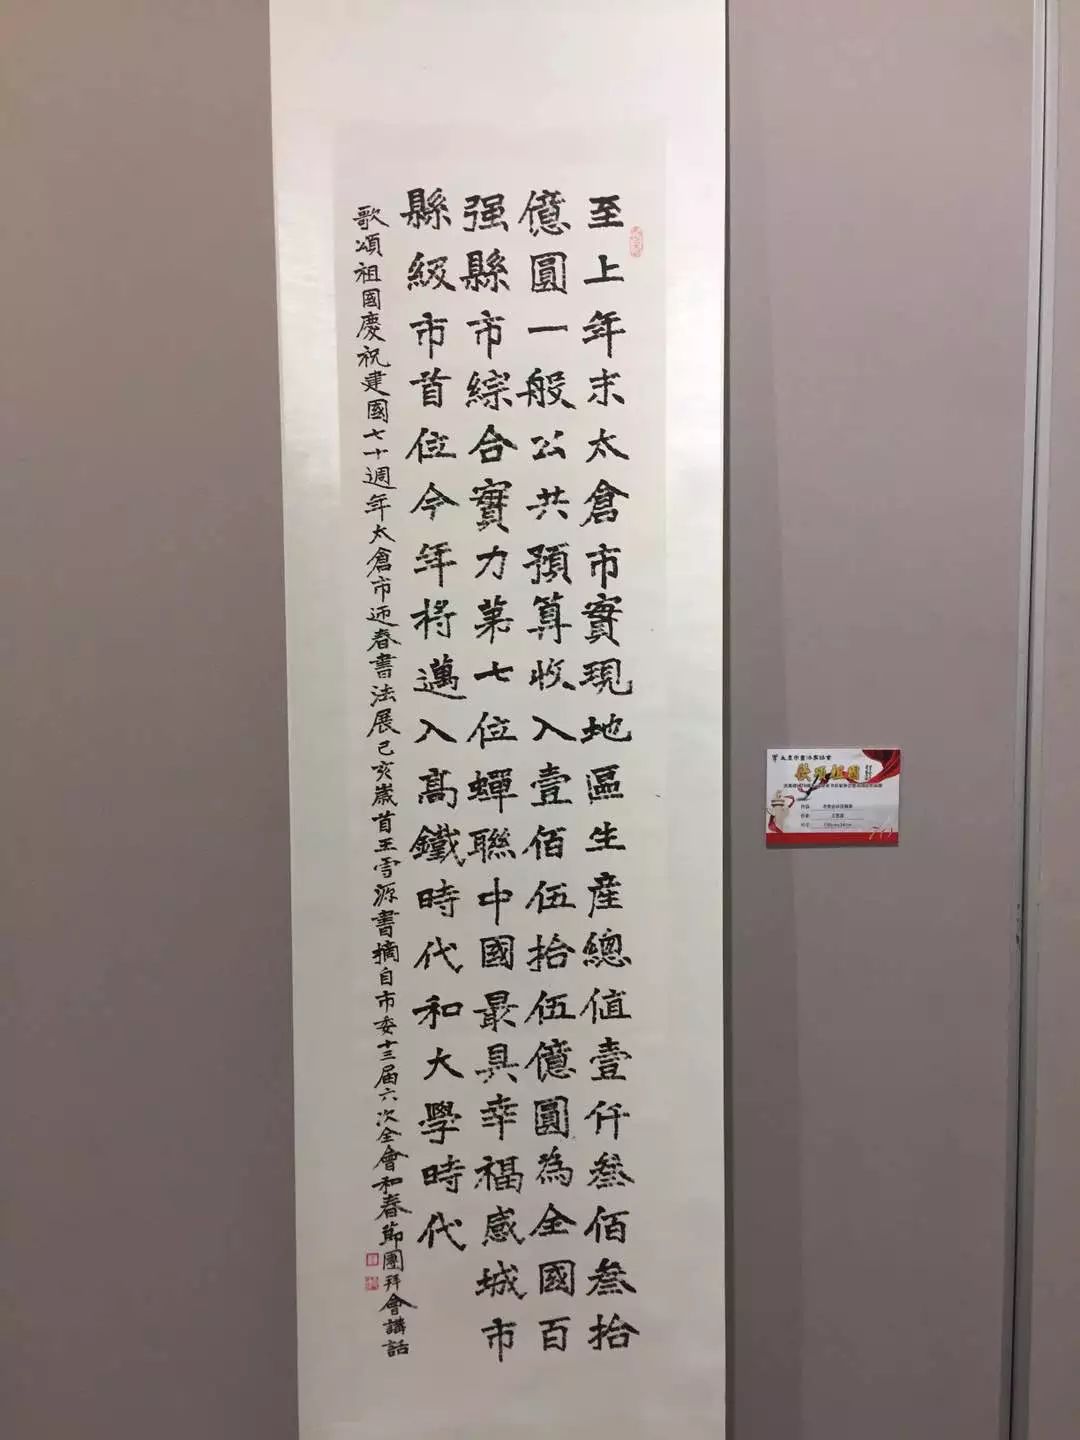 至上年末太倉市實現地區生產總值壹仟叁佰叁拾
億圓一般公共預算收入壹佰伍拾伍億圓為全國百
强縣市綜合實力第七位蟬聯中國最具幸福感城市
縣級市首位今年將邁入高鐵時代和大學時代
歌頌祖國慶祝建國七十週年太倉市迎春書法展己亥歲首王雪源書摘自市委十三届六次全會和春節團拜會講話
太倉市書法家協會
歌頌祖國